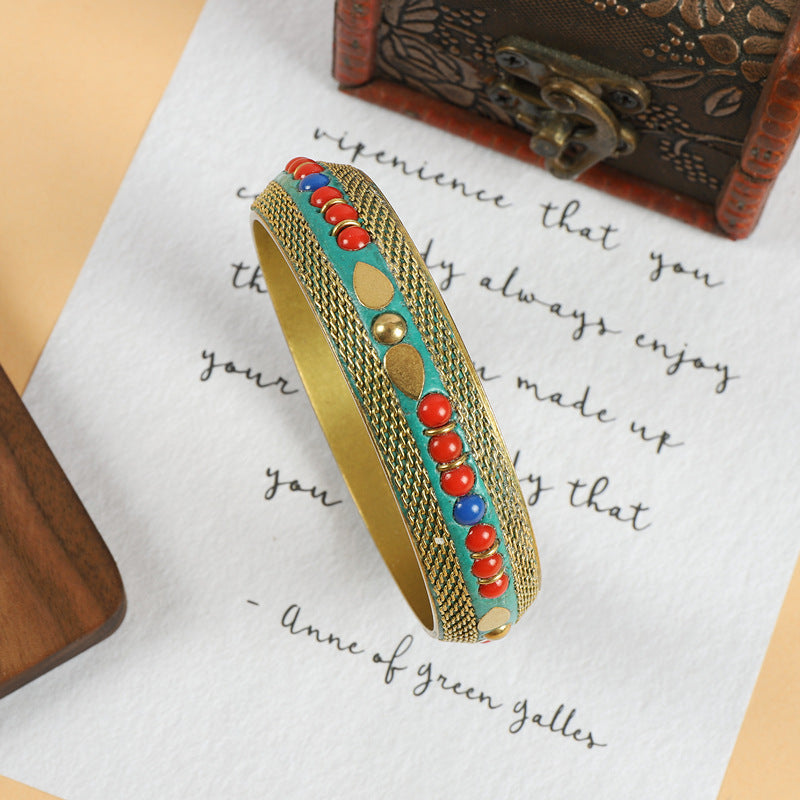 vipenience that you
always enjoy
your made up
you that
- Anne of green galles